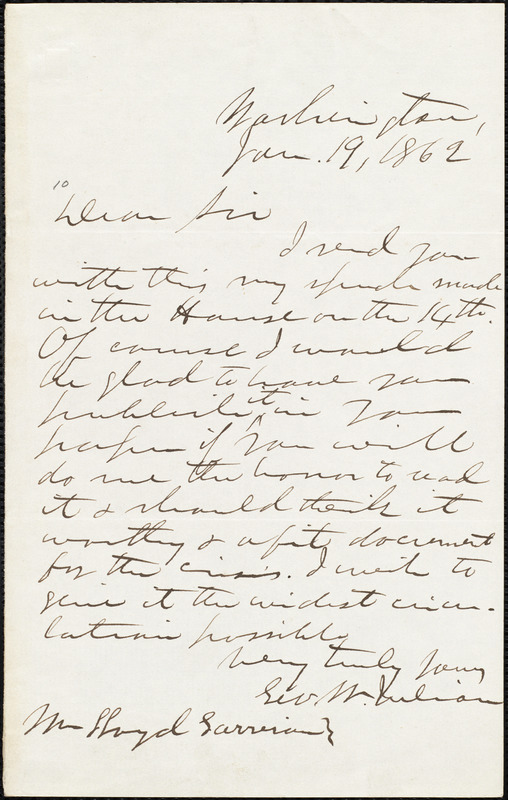 Washington,
Jan. 19, 1862
10
Dear Sir
I send you
with this my speech made
in the House on the 14th.
Of course I would
be glad to have you
publish it in your
paper if you will
do me the honor to read
it & should think it
worthy & a fit document
for the crisis. I wish to
give it the widest circu-
lation possible
Very truly yours
Geo W. Julian
Wm Lloyd Garrison}